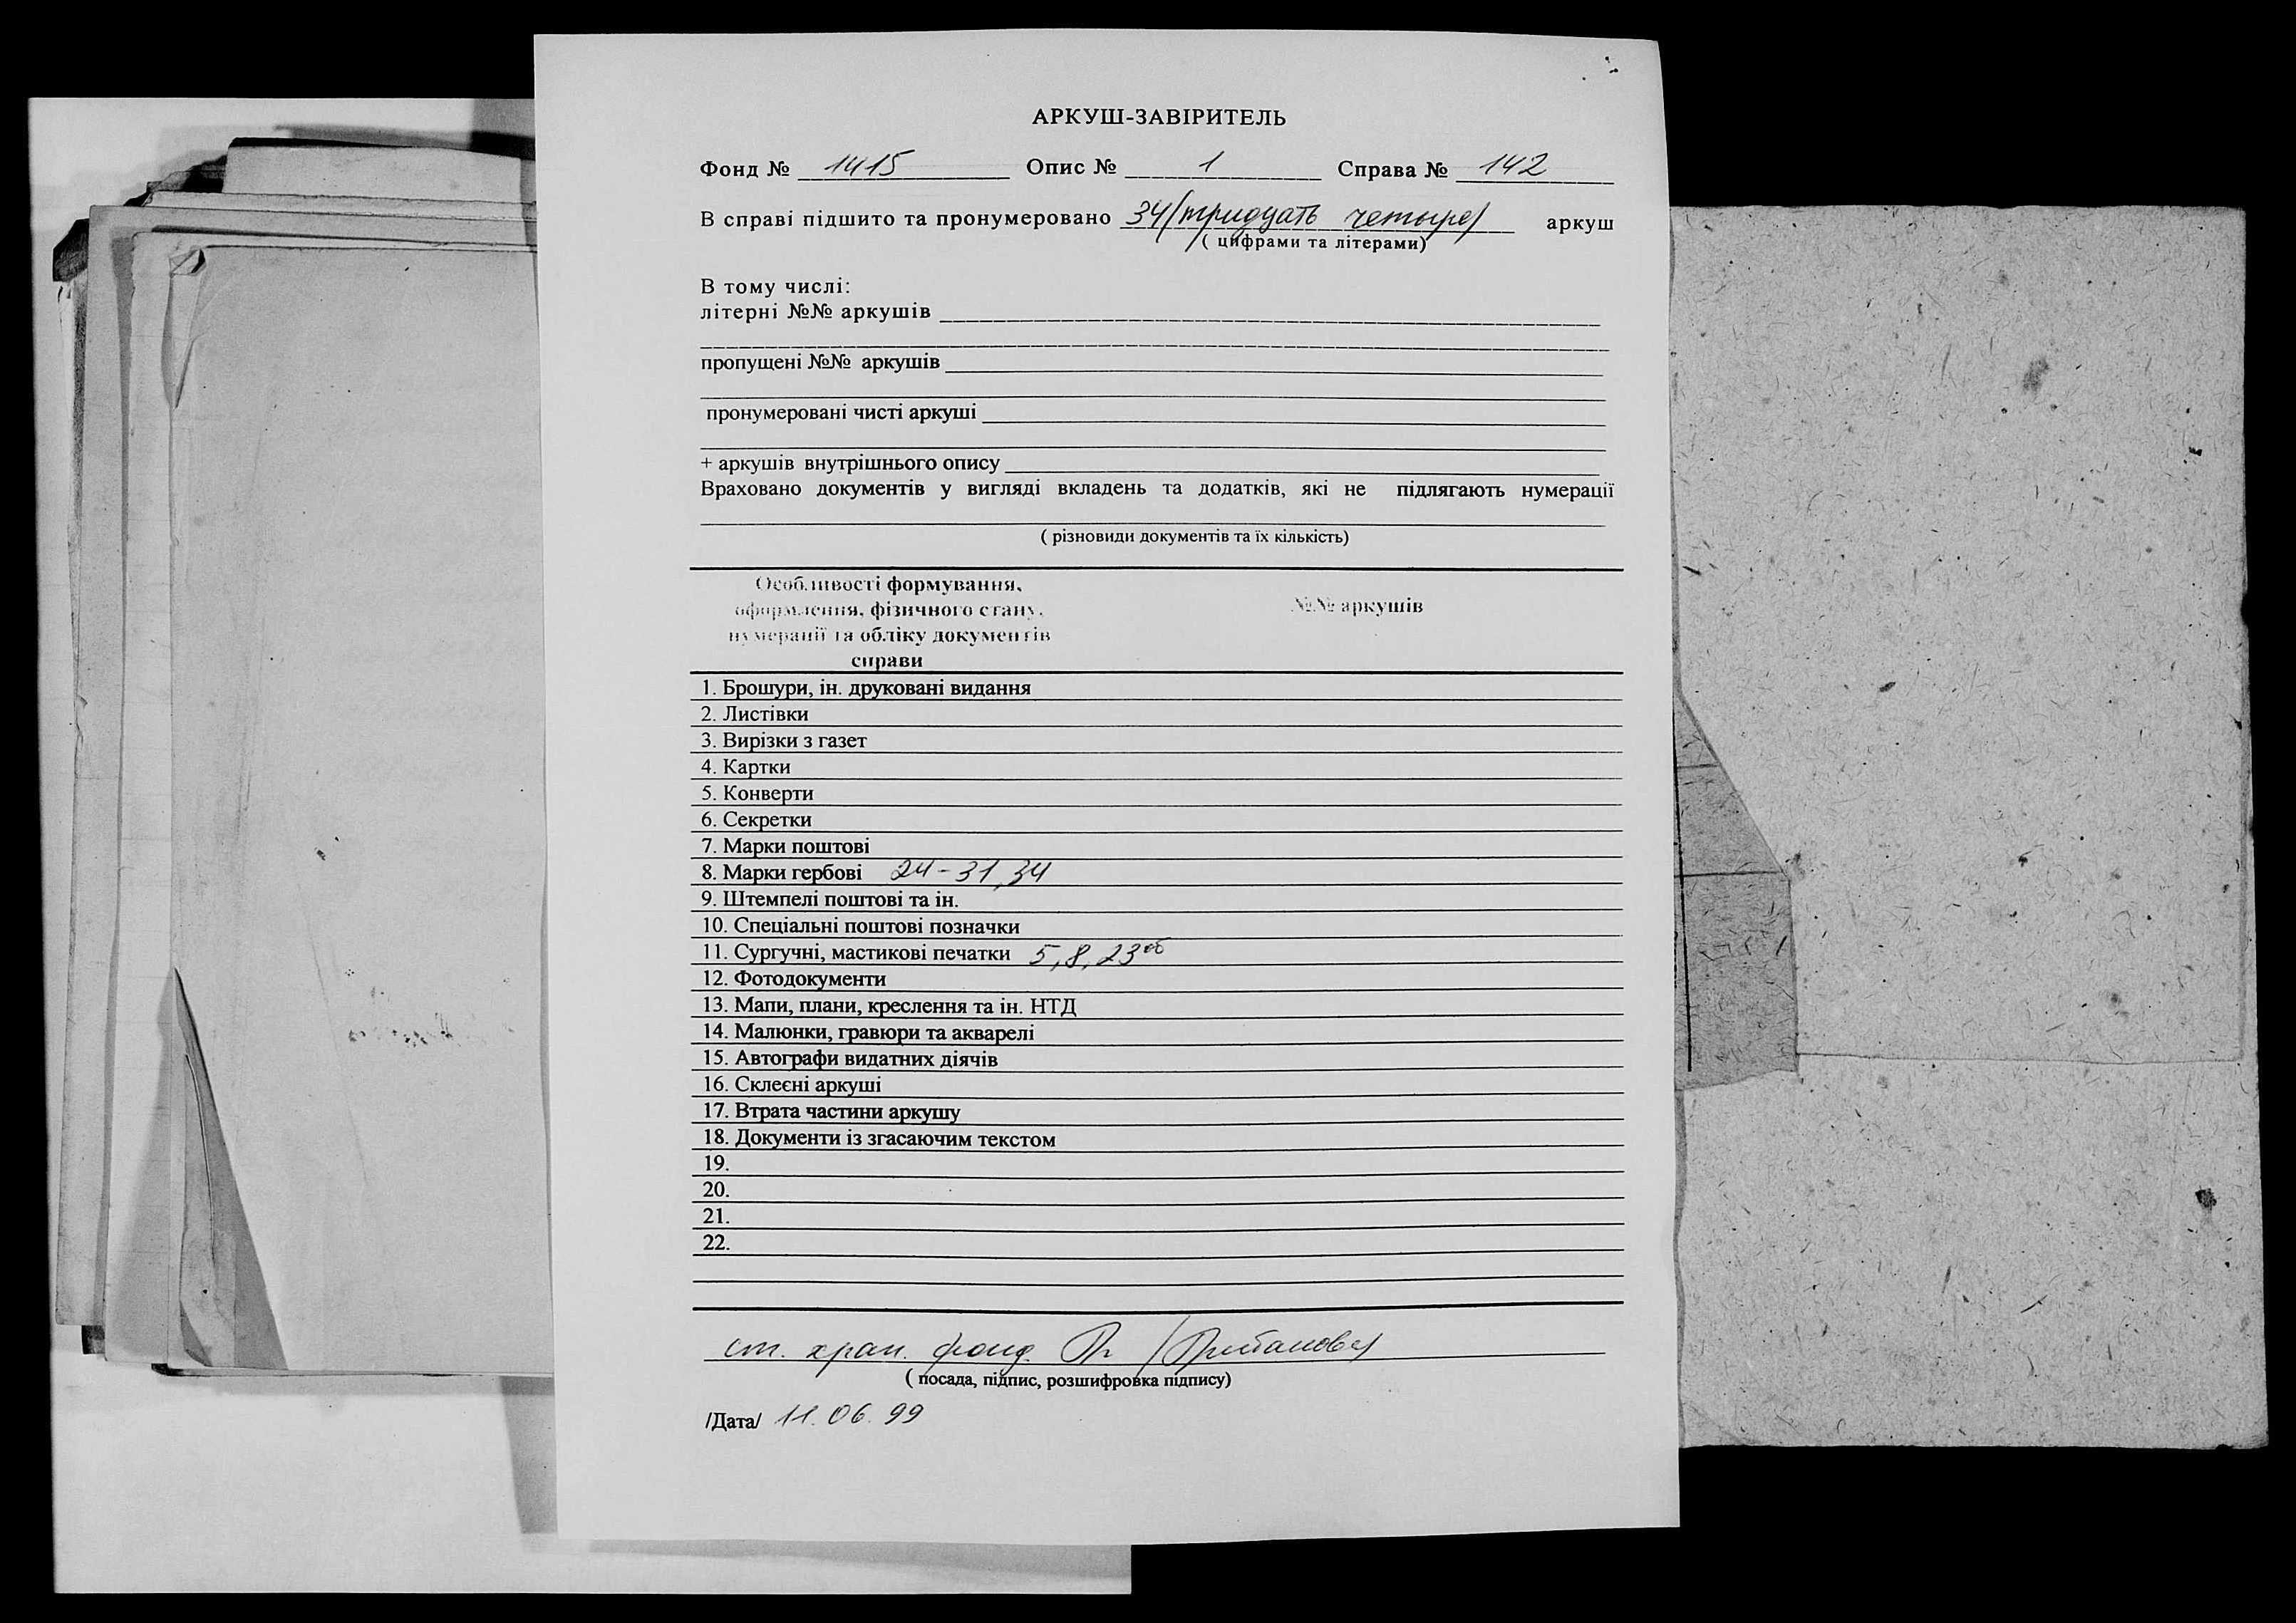 АРКУШ-ЗАВІРИТЕЛЬ
Фонд № 1415 Опис № 1 Справа № 142
В справі підшито та пронумеровано 34 (тридцать четыре) аркуш
( цифрами та літерами)
В тому числі:
літерні №№ аркушів
пропущені №№ аркушів
пронумеровані чисті аркуші
+ аркушів внутрішнього опису
Враховано документів у вигляді вкладень та додатків, які не підлягають нумерації
( різновиди документів та їх кількість)
Особливості формування,
оформлення, фізичного стану,
нумерації та обліку документів
справи
№№ аркушів
1. Брошури, ін. друковані видання
2. Листівки
3. Вирізки з газет
4. Картки
5. Конверти
6. Секретки
7. Марки поштові
8. Марки гербові 24-31, 34
9. Штемпелі поштові та ін.
10. Спеціальні поштові позначки
11. Сургучні, мастикові печатки 5, 8, 23об
12. Фотодокументи
13. Мапи, плани, креслення та ін. НТД
14. Малюнки, гравюри та акварелі
15. Автографи видатних діячів
16. Склеєні аркуші
17. Втрата частини аркушу
18. Документи із згасаючим текстом
19.
20.
21.
22.
ст. хран. фонд.
( посада, підпис, розшифровка підпису)
/Дата/ 11.06.99